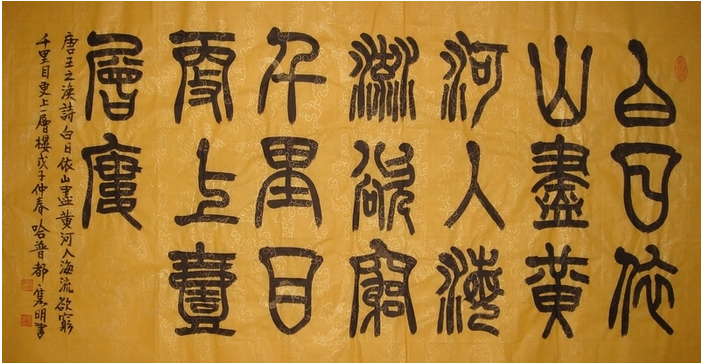 白日依
山盡黃
河入海
流欲窮
千里目
更上壹
層廔
唐王之渙詩白日依山盡黃河入海流欲窮
千里目更上一層樓戊子仲春哈普都隽明書